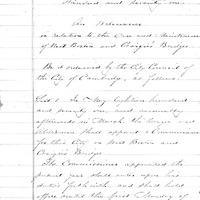 hundred and seventy one
An Ordinance
in relation to the Care and Maintenance
of West Boston and Craigie's Bridges.
Be it ordained by the City Council of
the City of Cambridge, as follows:
Sect. 1. In May eighteen hundred
and seventy one and annually
afterwards in March, the Mayor and
Aldermen shall appoint a Commissioner
for this City on West Boston and
Craigie's Bridges.
The Commissioner appointed the
present year shall enter upon his
duties forthwith, and shall hold
office until the first Monday of